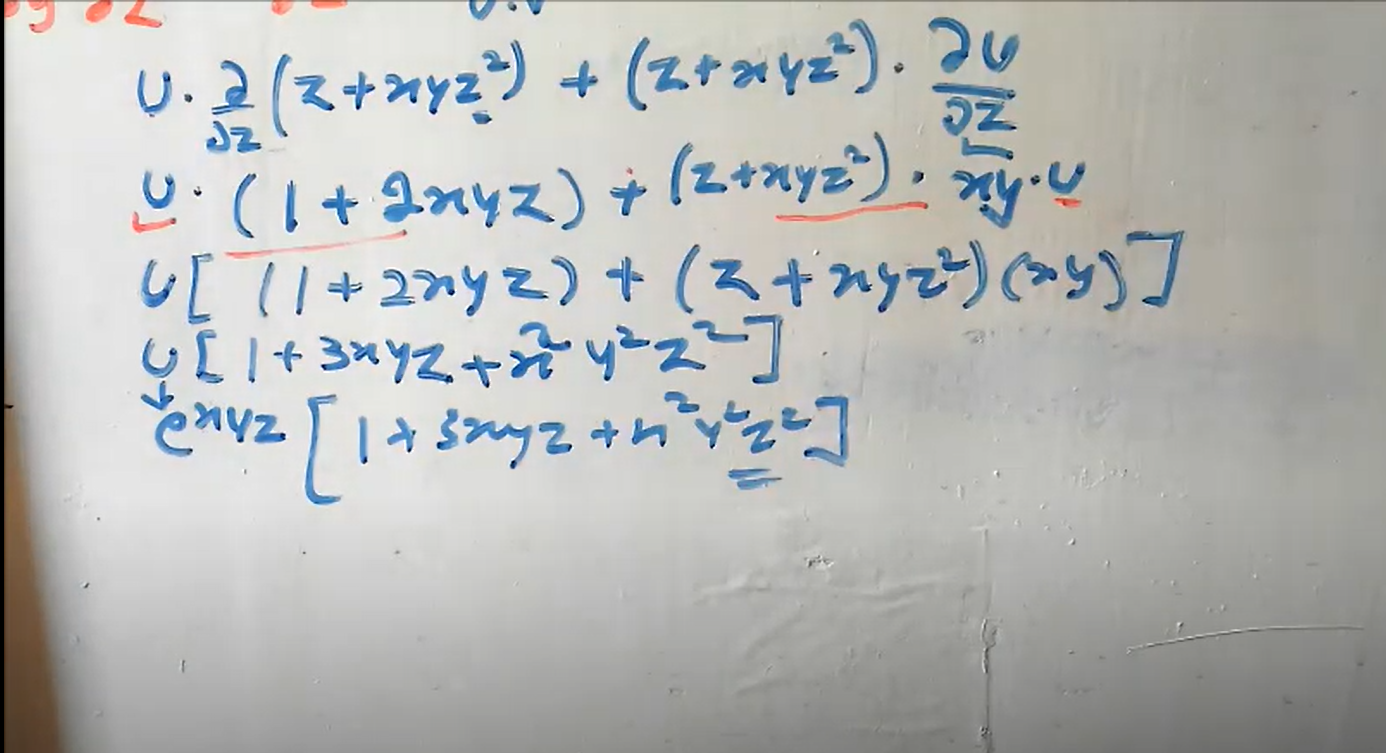 ∂y ∂z ∂z
U · ∂/∂z (z + xyz²) + (z + xyz²) · ∂U/∂z
U · (1 + 2xyz) + (z + xyz²) · xy · U
U [ (1 + 2xyz) + (z + xyz²) (xy) ]
U [ 1 + 3xyz + x² y² z² ]
↓
e^xyz [ 1 + 3xyz + x² y² z² ]